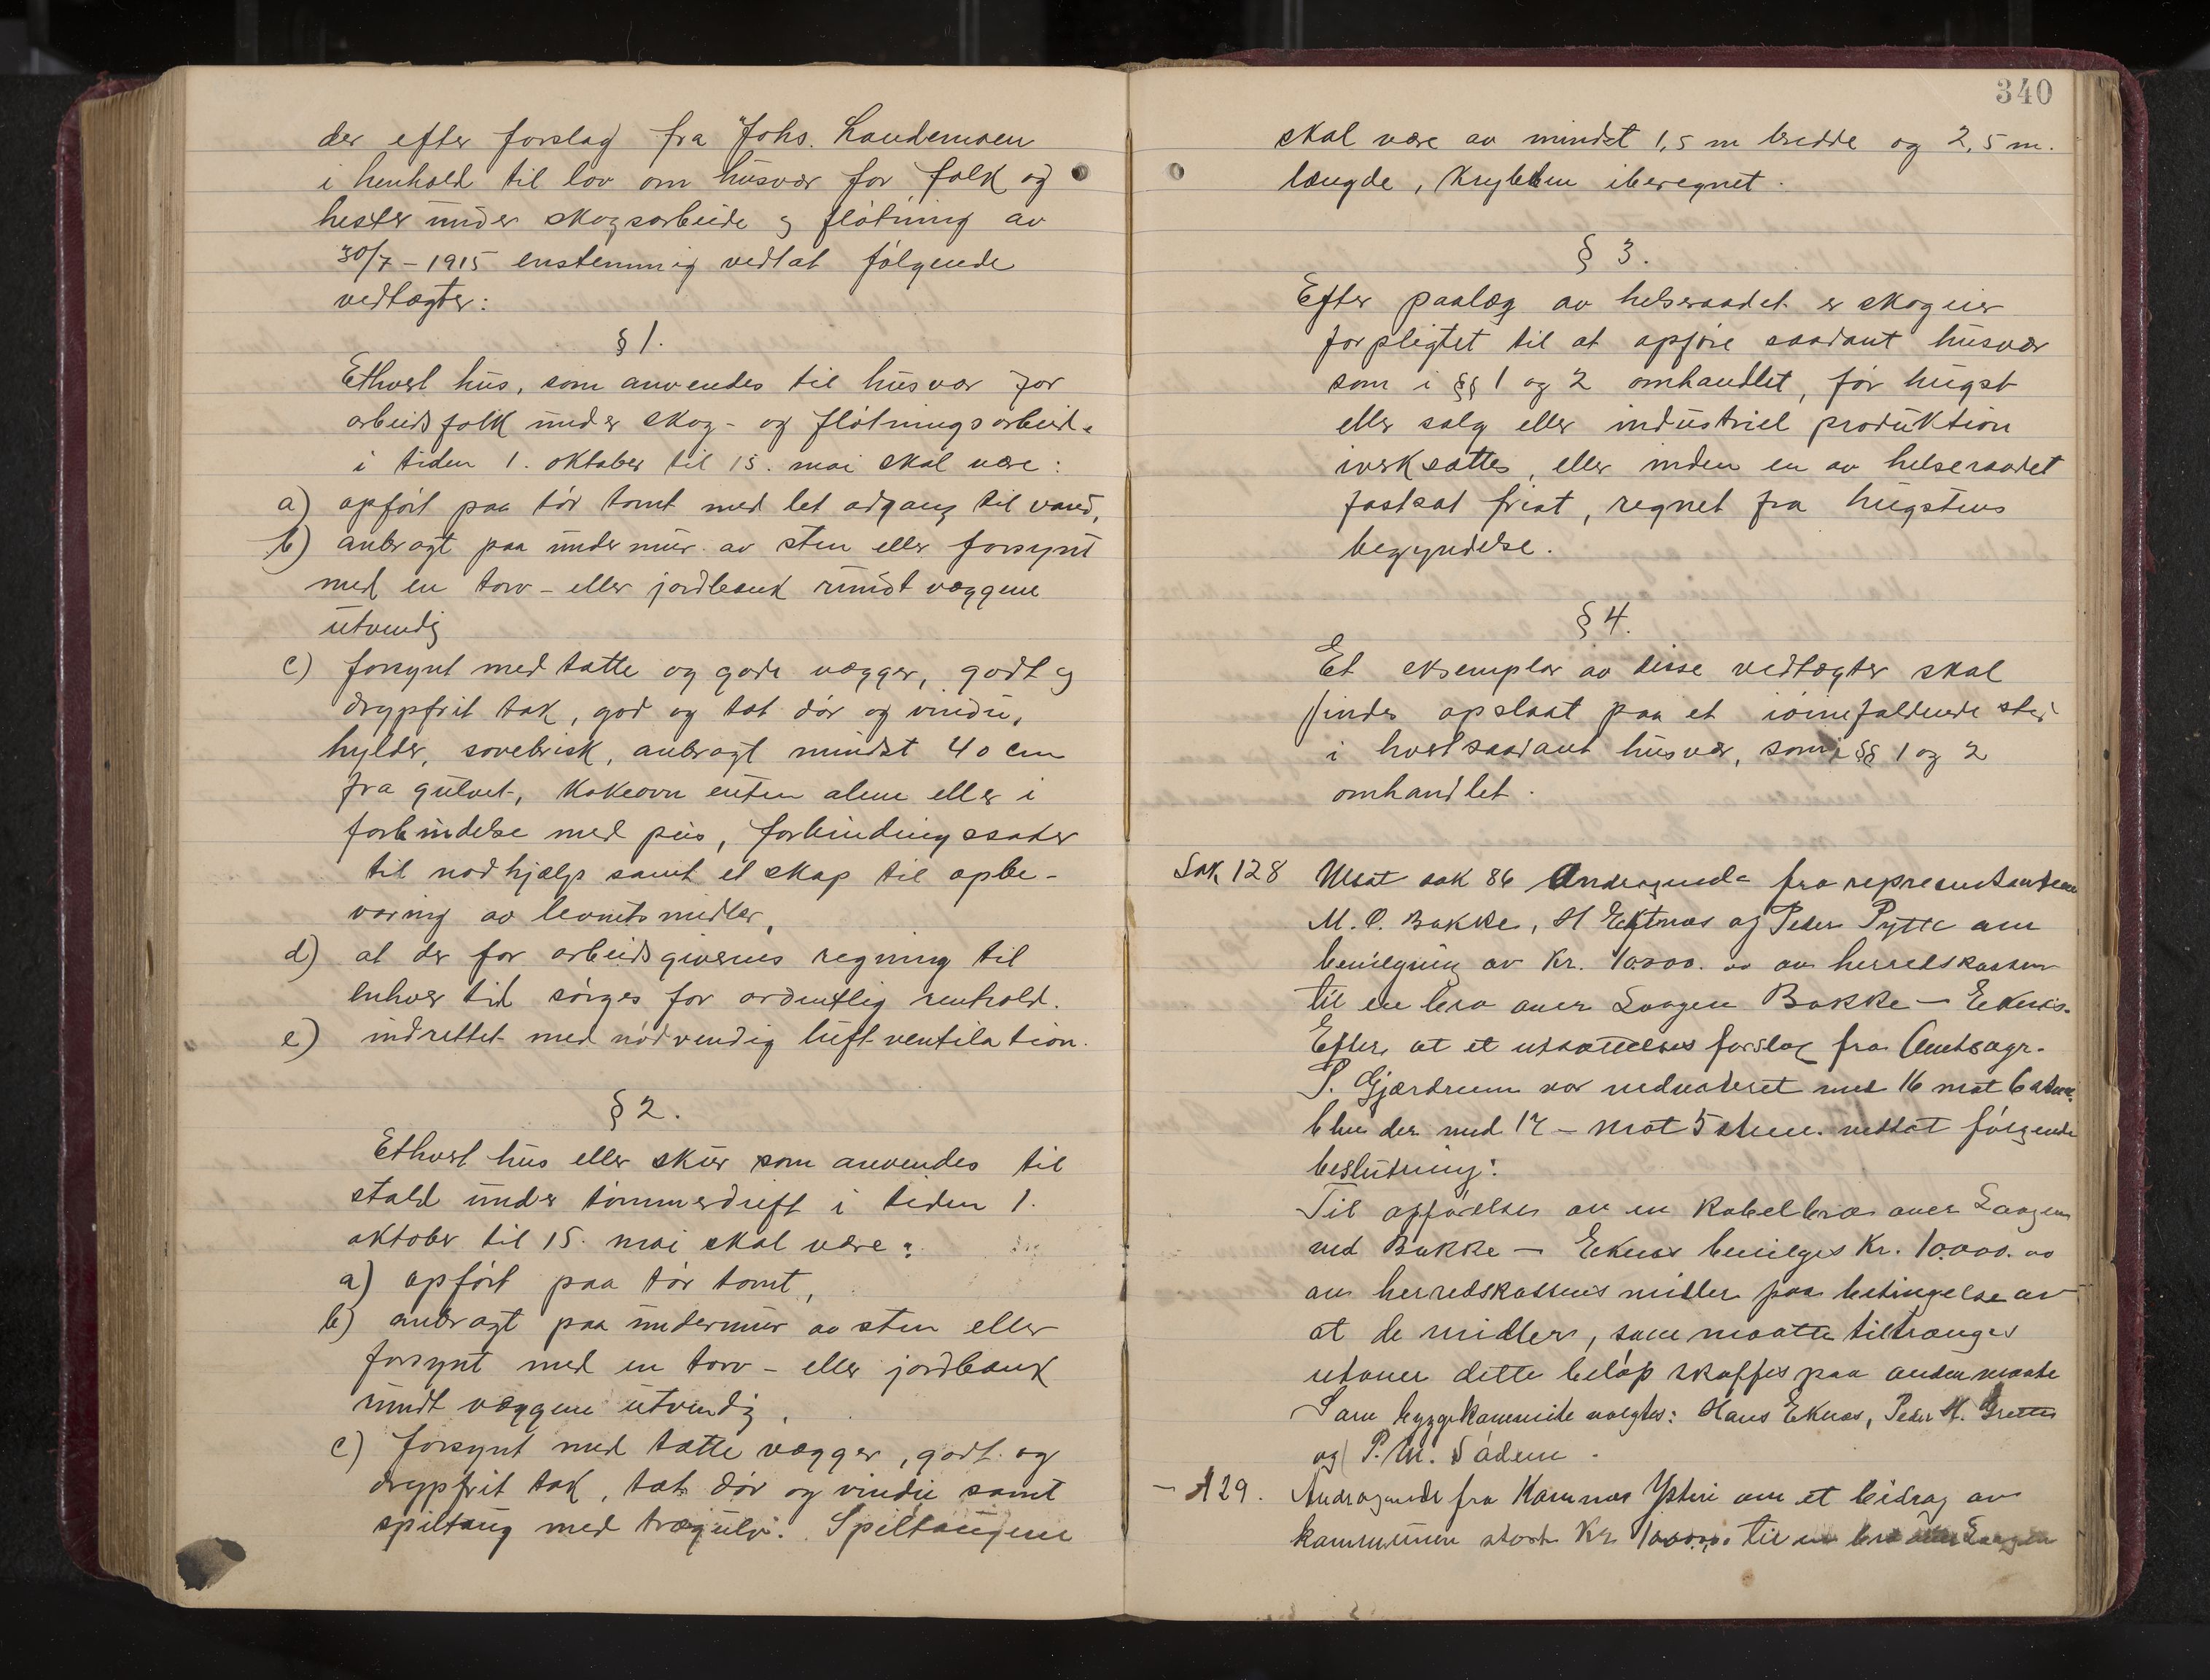 der efter forslag fra Johs. Landemoen
i henhold til lov om husvær for folk og
hester under skogsarbeide og fløtning av
30/7 - 1915 enstemmig vedtat følgende
vedtægter:
§ 1.
Ethvert hus, som anvendes til husvær for
arbeidsfolk under skog- og fløtningsarbeide
i tiden 1. oktober til 15. mai skal være:
a) opført paa tør tomt med let adgang til vand,
b) anbragt paa undermur av sten eller forsynt
med en torv- eller jordbank rundt væggene
utvendig
c) forsynt med tætte og gode vægger, godt og
drypfrit tak, god og tæt dør og vindu,
hylder, sovebrisk, anbragt mindst 40 cm
fra gulvet, kokeovn enten alene eller i
forbindelse med peis, forbindingssaker
til nødhjælp samt et skap til opbe-
varing av levnetsmidler,
d) at der for arbeidsgiverens regning til
enhver tid sørges for ordentlig renhold.
e) indrettet med nødvendig luftventilation.
§ 2.
Ethvert hus eller skur som anvendes til
stald under tømmerdrift i tiden 1.
oktober til 15. mai skal være:
a) opført paa tør tomt,
b) anbragt paa undermur av sten eller
forsynt med en torv- eller jordbank
rundt væggene utvendig,
c) forsynt med tætte vægger, godt og
drypfrit tak, tæt dør og vindu samt
spiltaug med trægulv. Spiltaugene
340
skal være av mindst 1,5 m bredde og 2,5 m.
længde, krybben iberegnet.
§ 3.
Efter paalæg av helseraadet er skogeier
forpligtet til at opføre saadant husvær
som i §§ 1 og 2 omhandlet, før hugst
eller salg eller industriel produktion
iverksættes, eller inden en av helseraadet
fastsat frist, regnet fra hugstens
begyndelse.
§ 4.
Et eksemplar av disse vedtægter skal
findes opslaat paa et iøinefaldende sted
i hvert saadant husvær, som i §§ 1 og 2
omhandlet.
Sak 128 Utsat sak 86 Andragende fra representantene
M. O. Bakke, H Ektnæs og Peder Pytte om
bevilgning av Kr. 10.000.00 av herredskassen
til en bro over Laagen Bakke — Eknæs.
Efter at et utsættelses forslag fra Amtsagr.
P. Gjærdrum var nedvoteret med 16 mot 6 stem.
blev der med 17 - mot 5 stem. vedtat følgende
beslutning:
Til opførelse av en Kabelbro over Laagen
ved Bakke — Eknæs bevilges Kr. 10.000.00
av herredskassens midler paa betingelse av
at de midler, som maatte tiltrænges
utover dette beløp skaffes paa anden maate
Som byggekommite valgtes: Hans Eknæs, Peder H. Grette
og P. M. Sådem.
- 129. Andragende fra Kamnæs Ysteri om et bidrag av
kommunen stort Kr. til en bro over Laagen